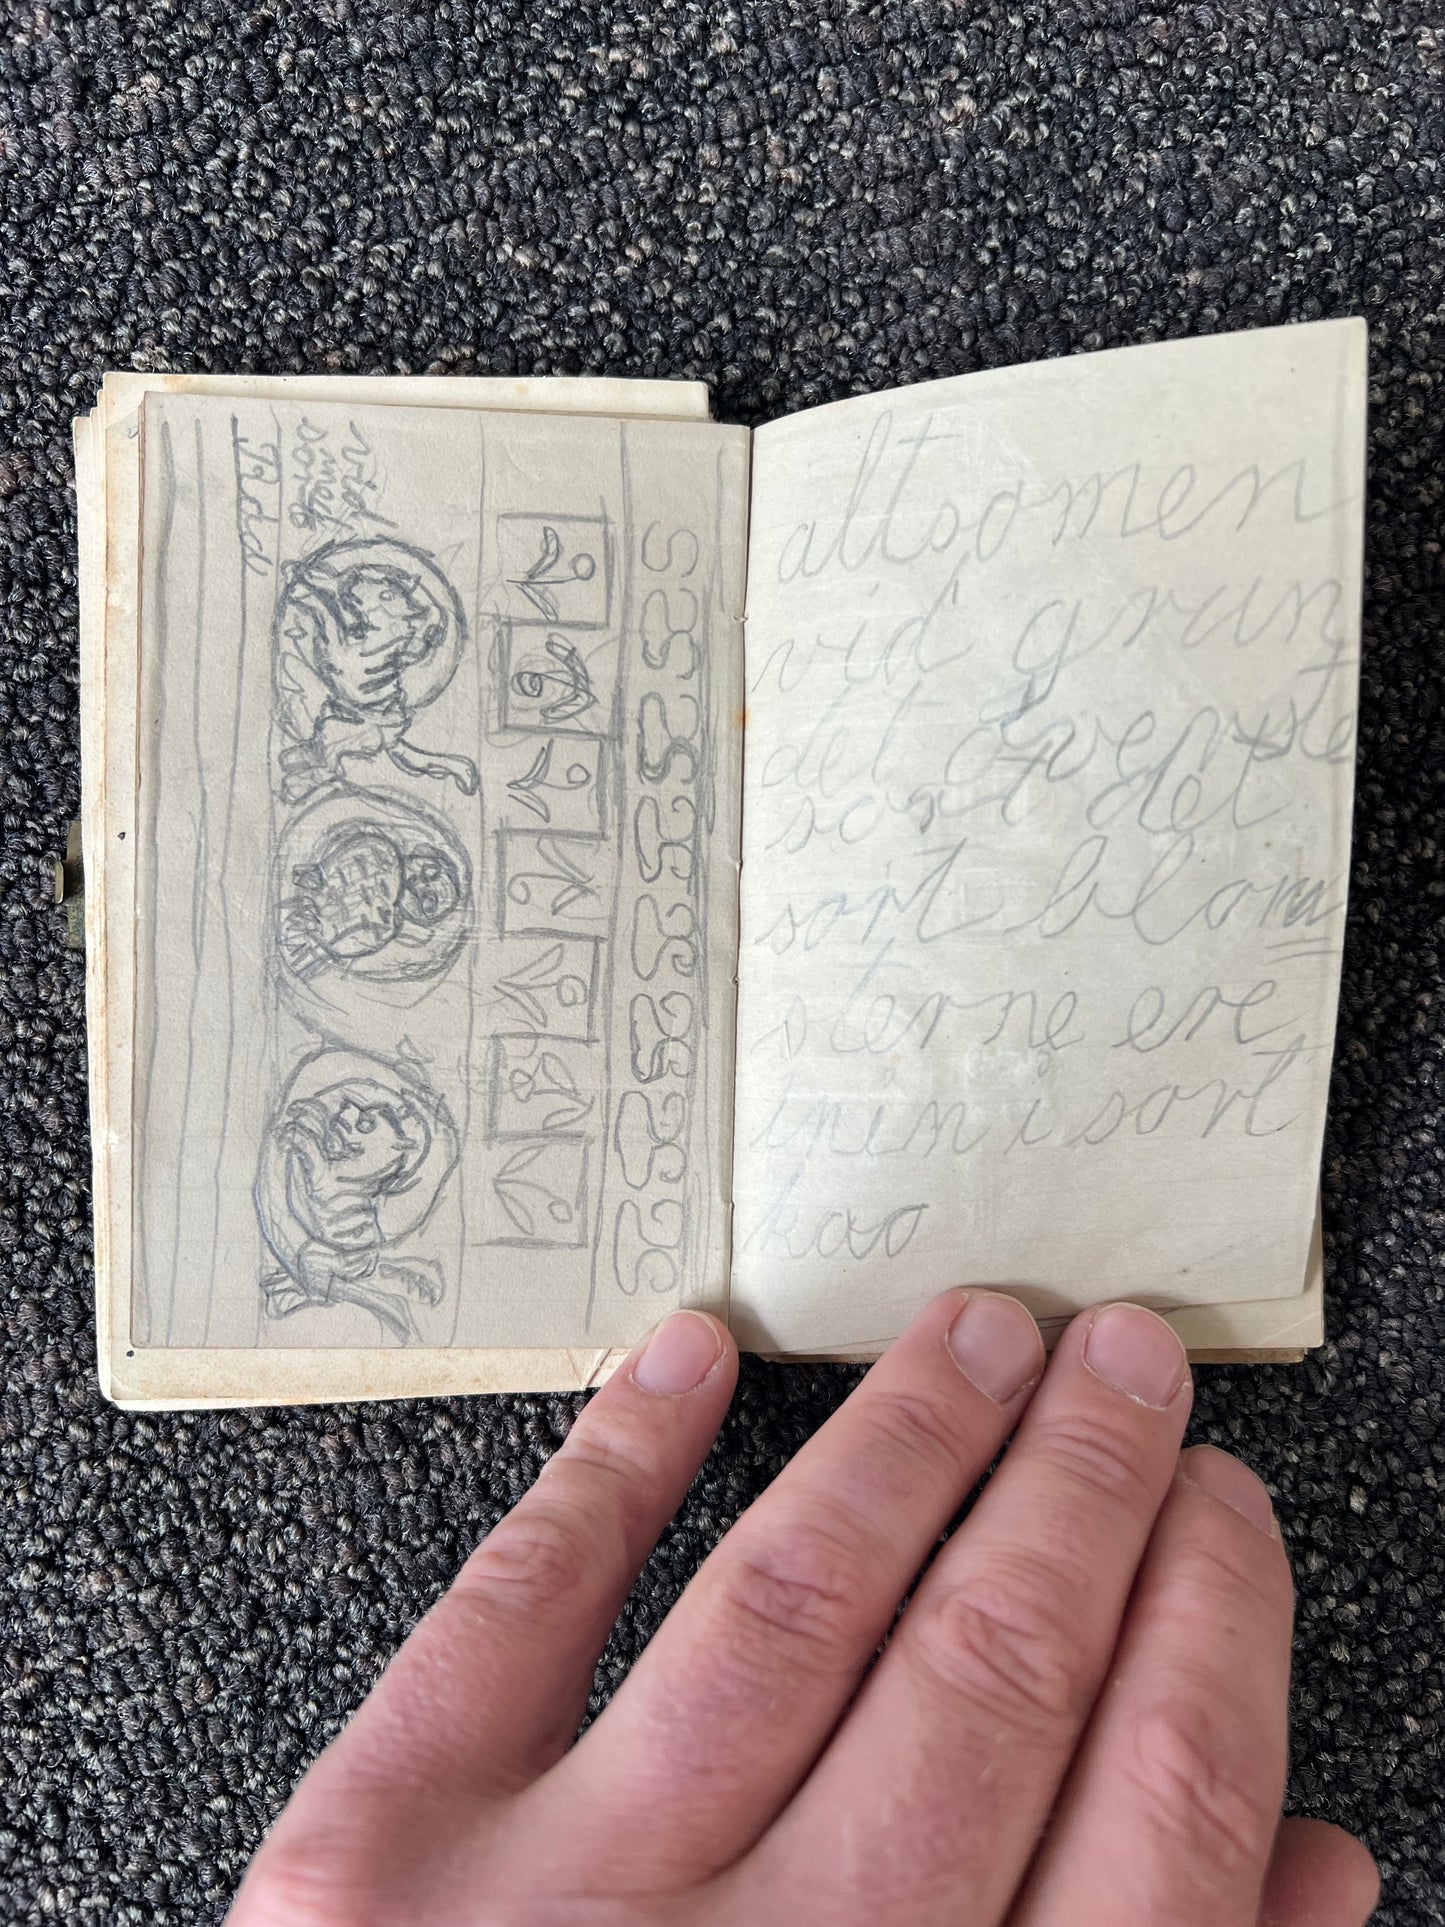 vid
sort
altsomen
vid grun
det øverste
sort det
sort blom
sterne ere
inin i sort
kao